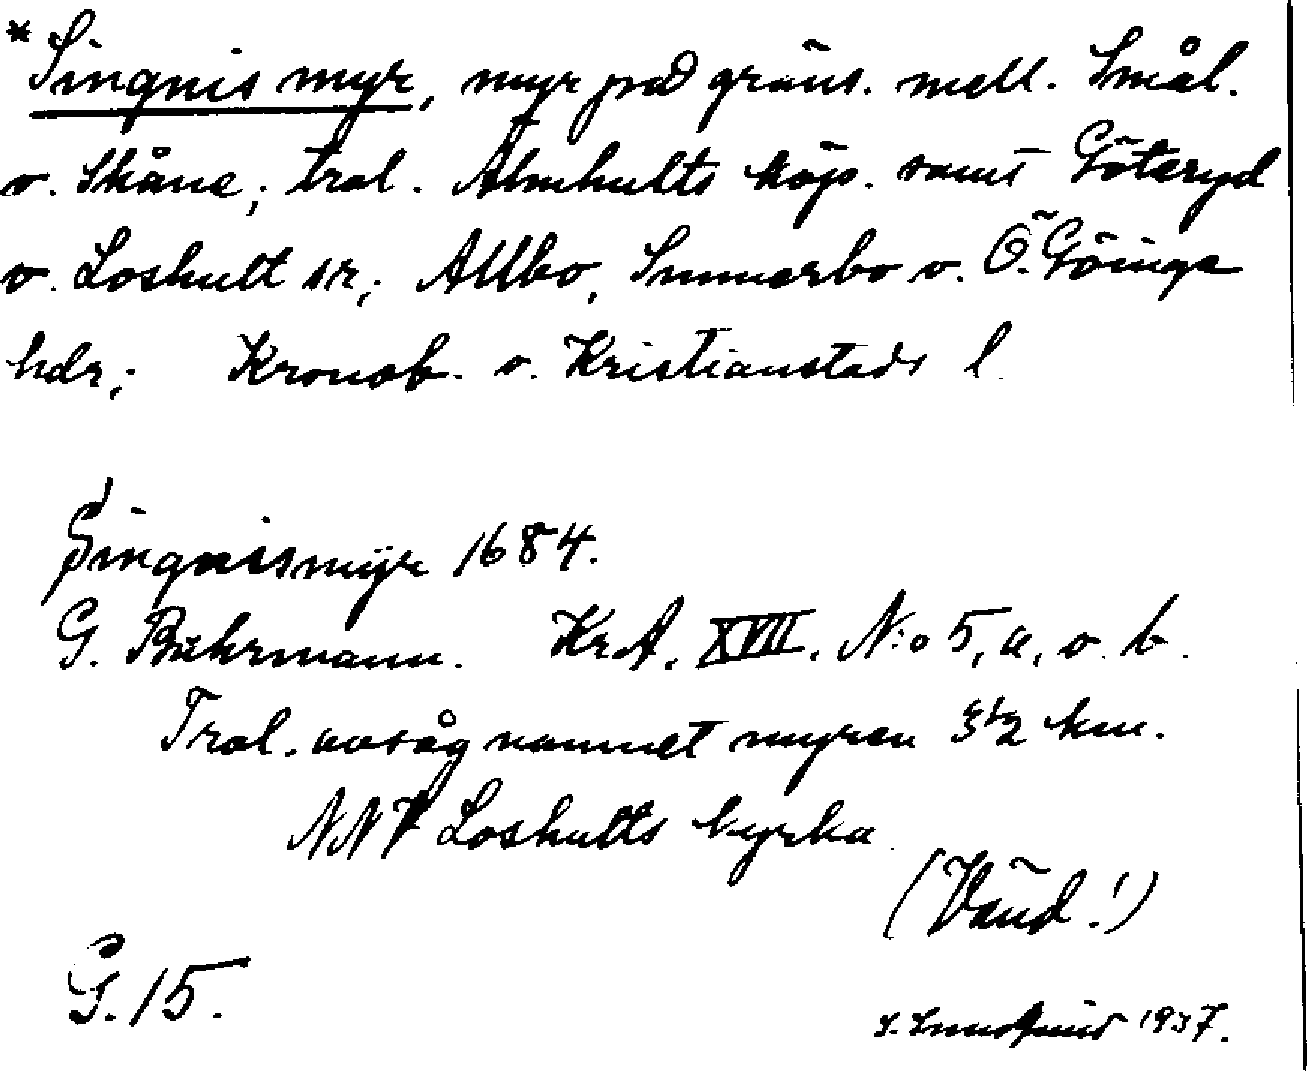 *Singnis myr, myr på gräns. mell. Smål.
o. Skåne; trol. Älmhults köp. samt Göteryd
o. Loshult sr; Allbo, Sunnerbo o. Ö. Göinge
hdr; Kronob. o. Kristianstads l.
Singnismÿr 1684.
G. Buhrmann. KrA. XVII. N:o 5, a, o. b.
Trol. avsåg namnet myren 3 1/2 km.
NNV Loshults kyrka
(Vänd!)
G. 15.
1937.